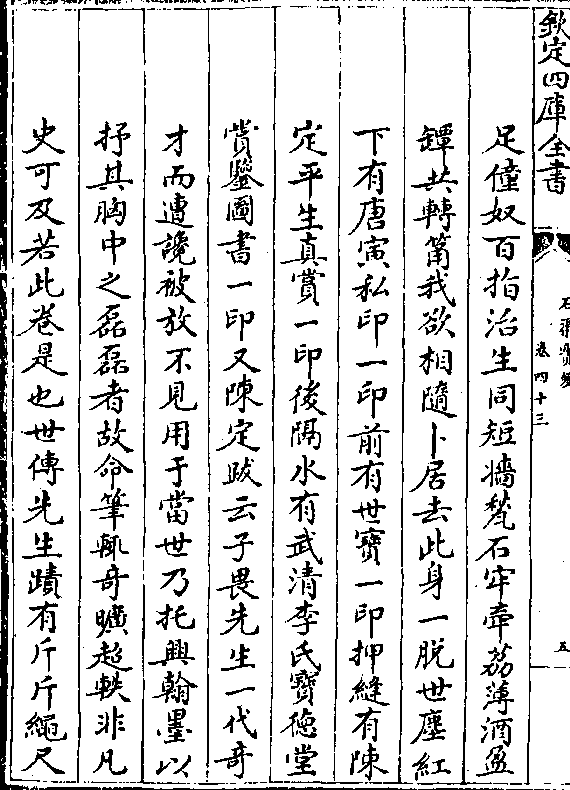 欽定四庫全書
石渠寶笈
卷四十三
五
足僮奴百指治生同短墻甃石牢牽荔薄酒盈
罈共轉筩我欲相隨卜居去此身一脫世塵紅
下有唐寅私印一印前有世寶一印押縫有陳
定平生真賞一印後隔水有武清李氏寶徳堂
賞鑒圖書一印又陳定跋云子畏先生一代奇
才而遭讒被放不見用于當世乃托興翰墨以
抒其胸中之磊磊者故命筆輒奇曠超軼非凡
史可及若此卷是也世傳先生蹟有斤斤繩尺